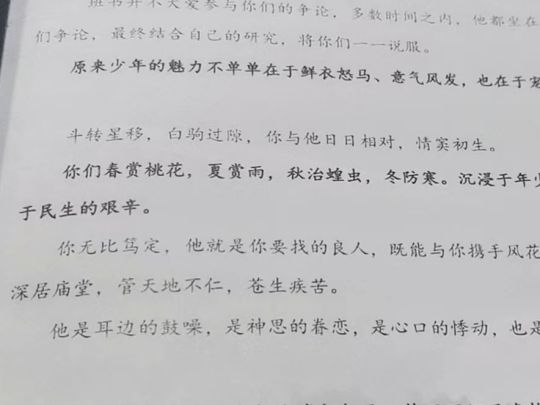 班书并不大爱参与你们的争论，多数时间之内，他都坐在
们争论，最终结合自己的研究，将你们一一说服。
原来少年的魅力不单单在于鲜衣怒马、意气风发，也在于
斗转星移，白驹过隙，你与他日日相对，情窦初生。
你们春赏桃花，夏赏雨，秋治蝗虫，冬防寒。沉浸于年少
于民生的艰辛。
你无比笃定，他就是你要找的良人，既能与你携手风花
深居庙堂，管天地不仁，苍生疾苦。
他是耳边的鼓噪，是神思的眷恋，是心口的悸动，也是